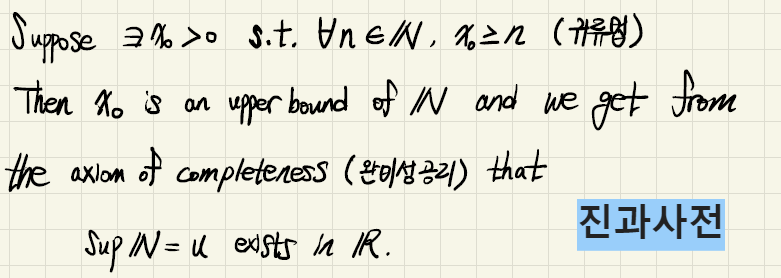 Suppose ∃x₀>0 s.t. ∀n∈ℕ, x₀≥n (귀류법)
Then x₀ is an upper bound of ℕ and we get from
the axiom of completeness (완비성공리) that
진과사전
Sup ℕ = u exists in ℝ.